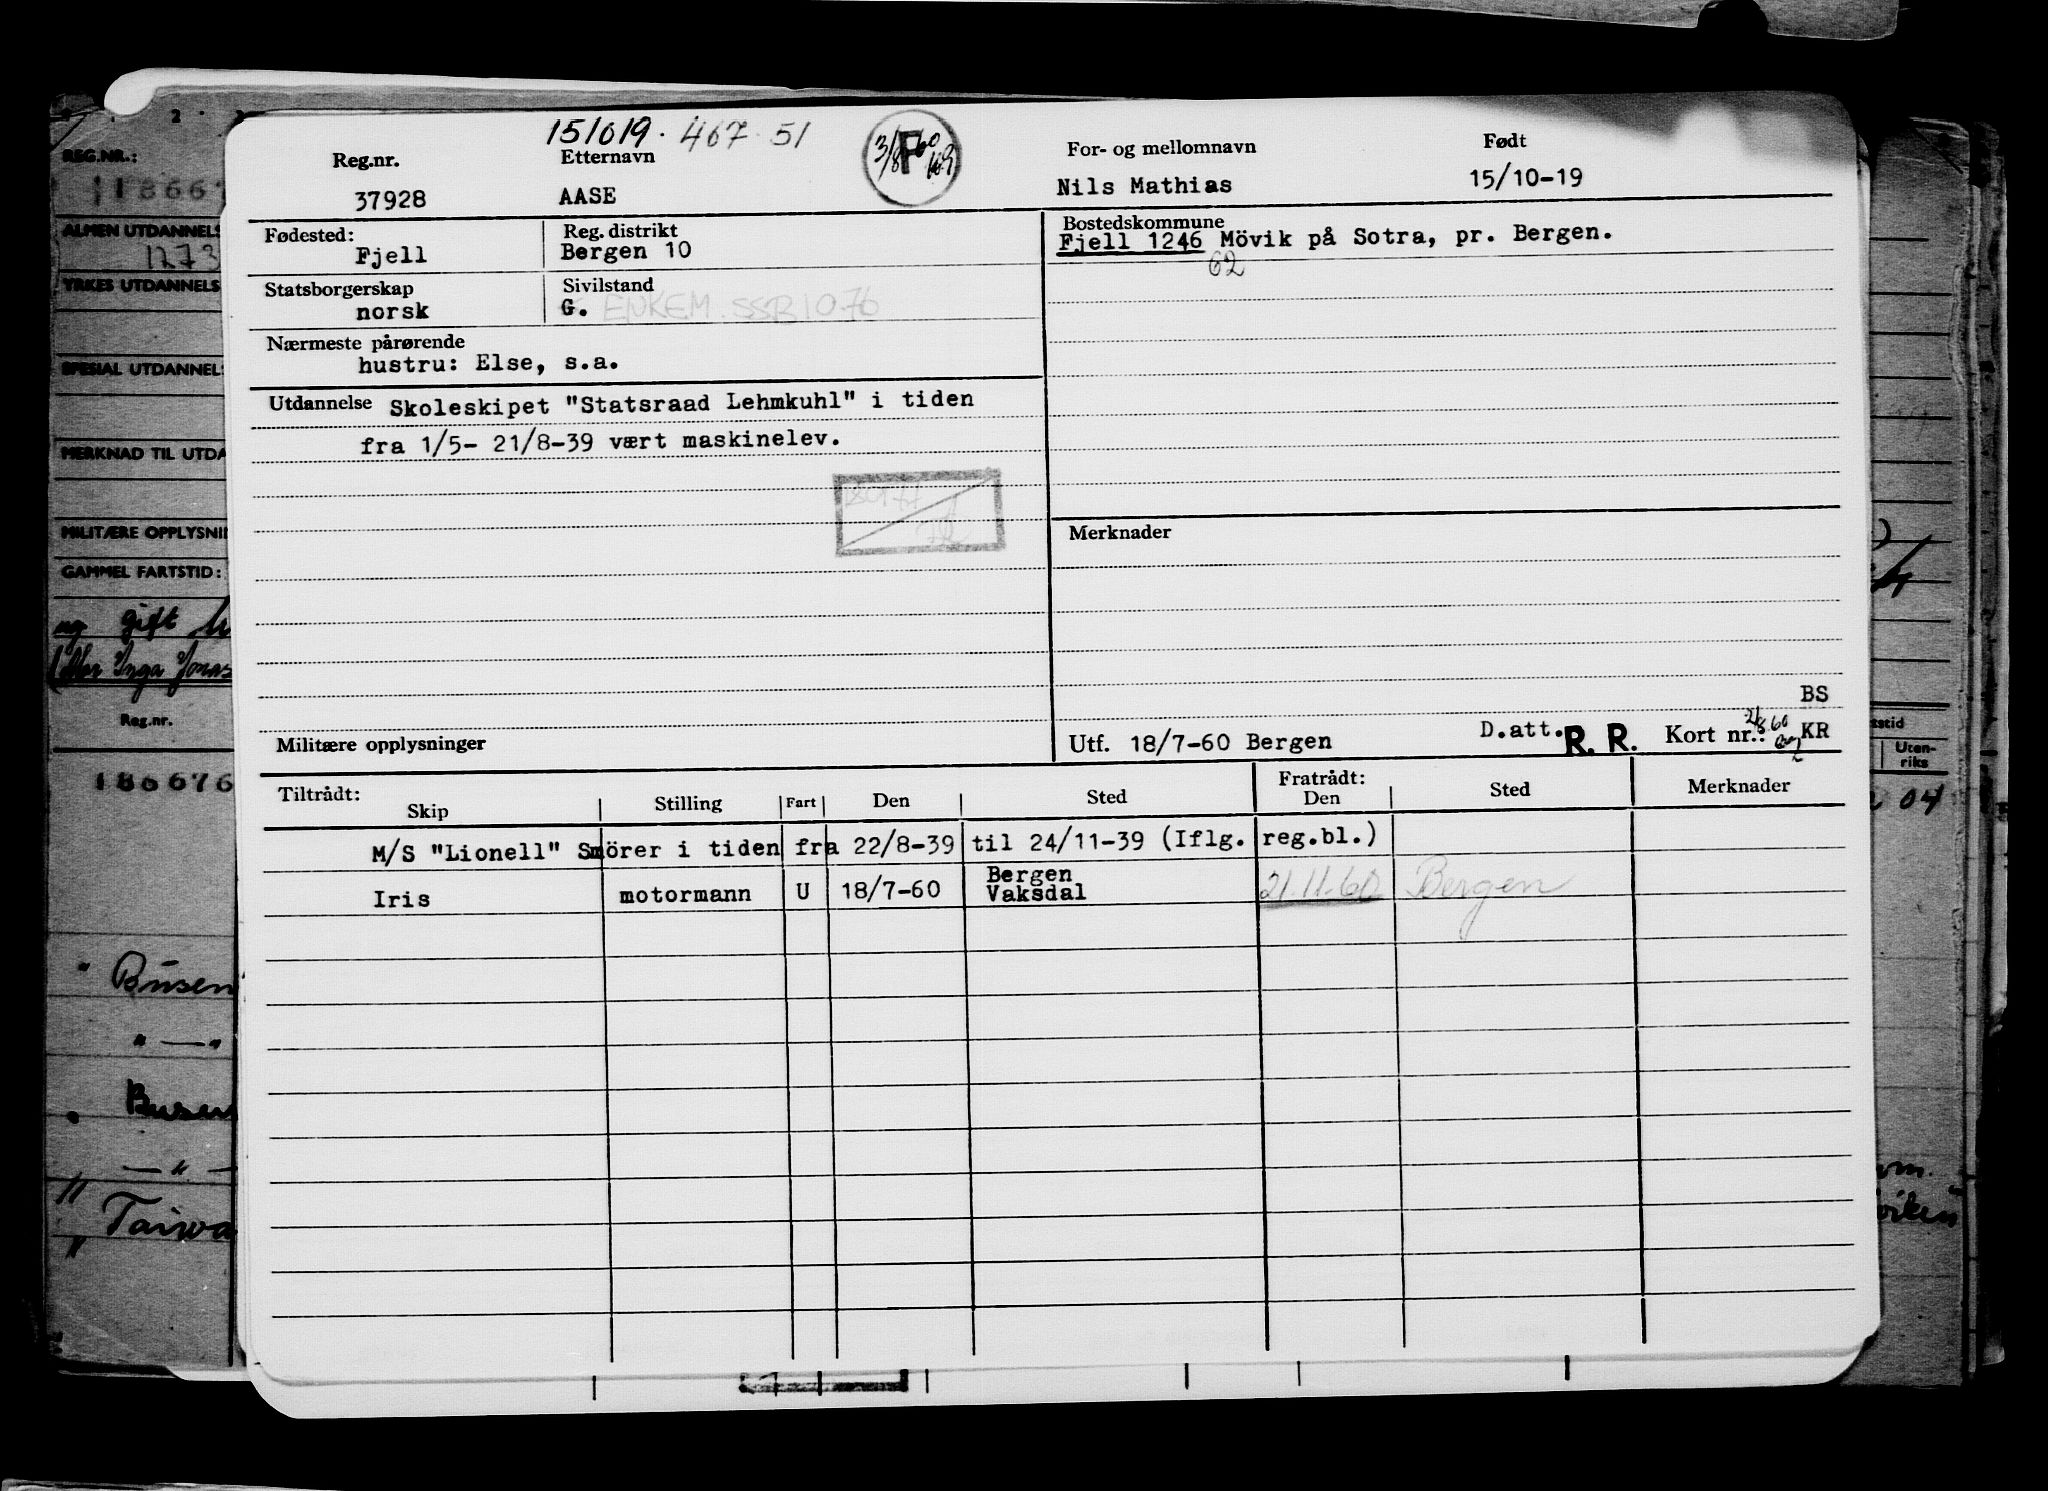 151019. 407 51
Reg.nr. Etternavn For- og mellomnavn Født
37928 AASE Nils Mathias 15/10-19
F
3/8 60
Fødested: Fjell
Reg. distrikt Bergen 10
Bostedskommune
Fjell 1246 Mövik på Sotra, pr. Bergen.
62
Statsborgerskap norsk
Sivilstand G. ENKEM. SSB1076
Nærmeste pårørende
hustru: Else, s.a.
Utdannelse Skoleskipet "Statsraad Lehmkuhl" i tiden
fra 1/5- 21/8-39 vært maskinelev.
Merknader
BS
Militære opplysninger
Utf. 18/7-60 Bergen D.att. R. R. Kort nr.: KR
Tiltrådt: Fratrådt:
Skip Stilling Fart Den Sted Den Sted Merknader
M/S "Lionell" Smörer i tiden fra 22/8-39 til 24/11-39 (Iflg. reg.bl.)
Iris motormann U 18/7-60 Bergen Vaksdal 21.11.60 Bergen
REG.NR.:
18667
ALMEN UTDANNELS
1273
YRKES UTDANNELS
SPESIAL UTDANNEL
MERKNAD TIL UTDA
MILITÆRE OPPLYSNI
GAMMEL FARTSTID:
og gift
Inga
Reg.nr.
186676
Busen
Taiwa
Uten-
riks
04